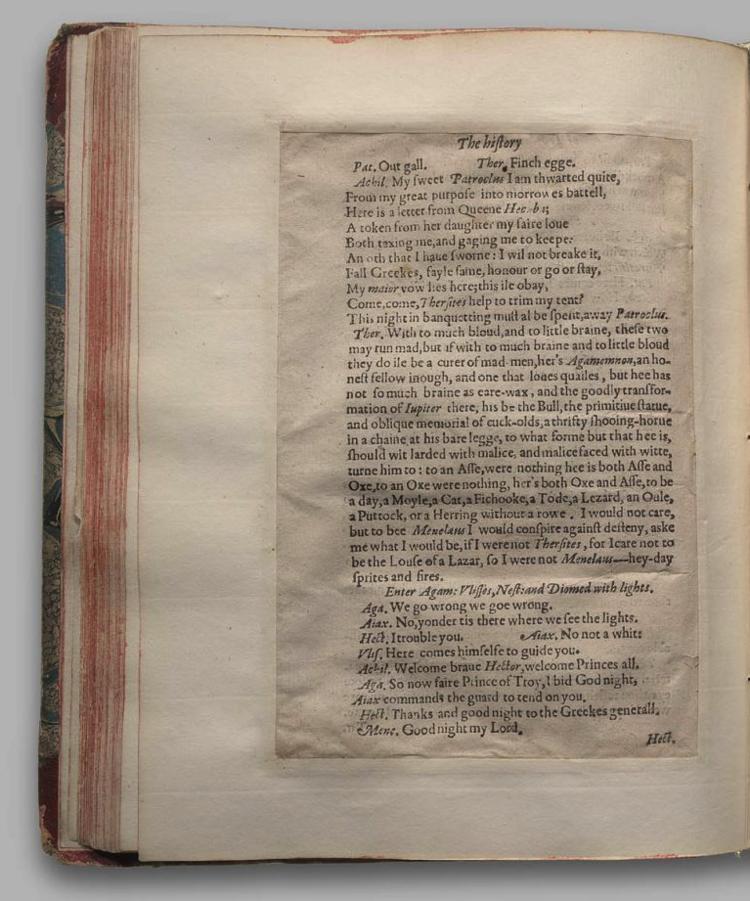 The hiſtory
Pat. Out gall. Ther. Finch egge.
Achil. My ſweet Patroclus I am thwarted quite,
From my great purpoſe into morrowes battell,
Here is a letter from Queene Hecuba;
A token from her daughter my faire loue
Both taxing me,and gaging me to keepe:
An oth that I haue ſworne: I wil not breake it,
Fall Greekes, fayle fame, honour or go or ſtay,
My maior vow lies here;this ile obay,
Come,come,Therſites help to trim my tent?
This night in banquetting muſt al be ſpent,away Patroclus.
Ther. With to much bloud,and to little braine, theſe two
may run mad,but if with to much braine and to little bloud
they do ile be a curer of mad-men,her's Agamemnon,an ho-
neſt fellow inough, and one that loues quailes, but hee has
not ſo much braine as eare-wax, and the goodly transfor-
mation of Iupiter there, his be the Bull,the primitiue ſtatue,
and oblique memorial of cuck-olds,a thrifty ſhooing-horne
in a chaine at his bare legge, to what forme but that hee is,
ſhould wit larded with malice, and malice faced with witte,
turne him to: to an Aſſe,were nothing hee is both Aſſe and
Oxe,to an Oxe were nothing, her's both Oxe and Aſſe,to be
a day,a Moyle,a Cat,a Fichooke,a Tode,a Lezard, an Oule,
a Puttock, or a Herring without a rowe. I would not care,
but to bee Menelaus I would conſpire againſt deſteny, aske
me what I would be,if I were not Therſites, for I care not to
be the Louſe of a Lazar, ſo I were not Menelaus—hey-day
ſprites and fires.
Enter Agam: Vliſſes,Neſt:and Diomed with lights.
Aga. We go wrong we goe wrong.
Aiax. No,yonder tis there where we ſee the lights.
Hect. I trouble you. Aiax. No not a whit:
Vliſ. Here comes himſelfe to guide you.
Achil. Welcome braue Hector,welcome Princes all.
Aga. So now faire Prince of Troy,I bid God night,
Aiax commands the guard to tend on you.
Hect. Thanks and good night to the Greekes generall.
Mene. Good night my Lord.
Hect.